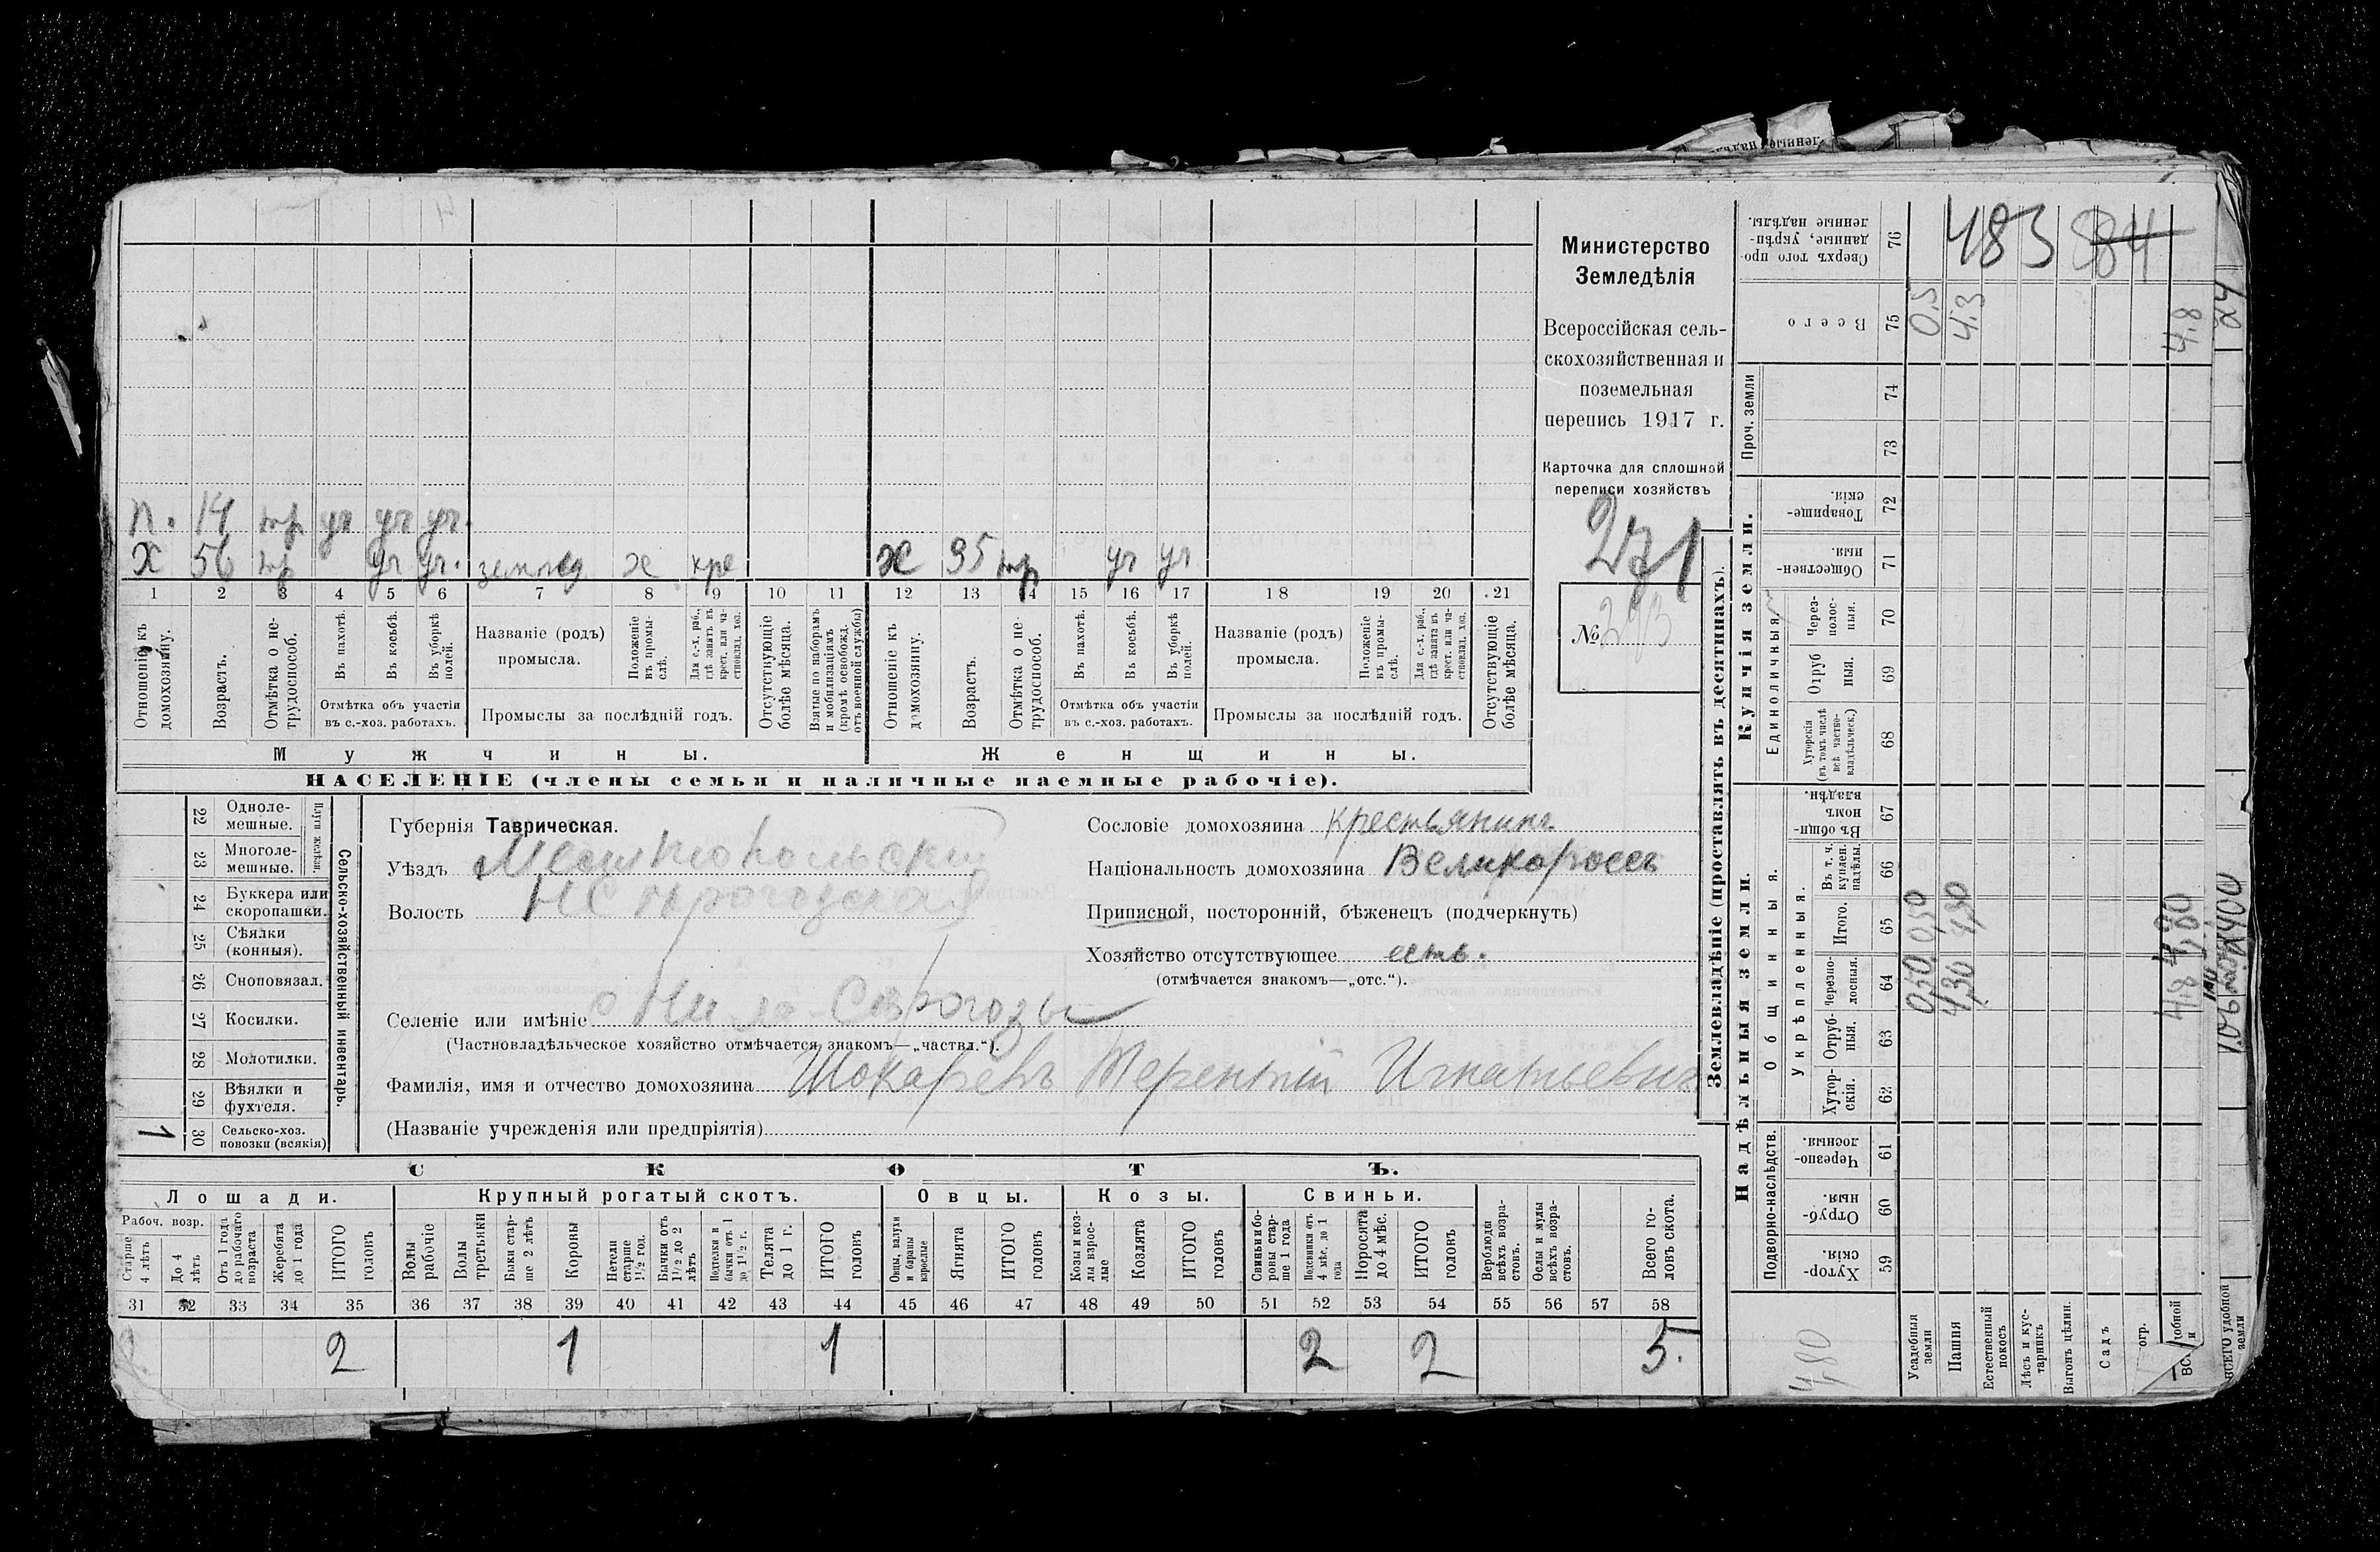 п. 14 тр уч уч уч.
х 56 тр уч уч. землед х кре ж 35 тр уч уч
1 2 3 4 5 6 7 8 9 10 11 12 13 14 15 16 17 18 19 20 21
Отношеніе къ домохозяину.
Возрастъ.
Отмѣтка о нетрудоспособ.
Въ пахотѣ.
Въ косьбѣ.
Въ уборкѣ полей.
Отмѣтка объ участіи
въ с.-хоз. работахъ.
Названіе (родъ)
промысла.
Положеніе въ промыслѣ.
Для с.-х. раб., гдѣ занятъ въ крест. или частновлад. хоз.
Промыслы за послѣдній годъ.
Отсутствующіе болѣе мѣсяца.
Взятые по наборамъ и мобилизаціямъ (кромѣ освобожд. отъ военной службы)
Отношеніе къ домохозяину.
Возрастъ.
Отмѣтка о нетрудоспособ.
Въ пахотѣ.
Въ косьбѣ.
Въ уборкѣ полей.
Отмѣтка объ участіи
въ с.-хоз. работахъ.
Названіе (родъ)
промысла.
Положеніе въ промыслѣ.
Для с.-х. раб., гдѣ занята въ крест. или частновлад. хоз.
Промыслы за послѣдній годъ.
Отсутствующіе болѣе мѣсяца.
Мужчины. Женщины.
НАСЕЛЕНІЕ (члены семьи и наличные наемные рабочіе).
Министерство
Земледѣлія
Всероссійская сель-
скохозяйственная и
поземельная
перепись 1917 г.
Карточка для сплошной
переписи хозяйствъ
271
№ 273
Сельско-хозяйственный инвентарь.
Плуги желѣзн.
22 Однолемешные.
23 Многолемешные.
24 Буккера или скоропашки.
25 Сѣялки (конныя).
26 Сноповязал.
27 Косилки.
28 Молотилки.
29 Вѣялки и фухтеля.
30 Сельско-хоз. повозки (всякія) 1
Губернія Таврическая.
Уѣздъ Мелитопольскій
Волость
Селеніе или имѣніе
(Частновладѣльческое хозяйство отмѣчается знакомъ—„частвл.“).
Фамилія, имя и отчество домохозяина Шокаревъ Терентій Игнатьевич
(Названіе учрежденія или предпріятія)
Сословіе домохозяина крестьянинъ
Національность домохозяина Великороссъ
Приписной, посторонній, бѣженецъ (подчеркнуть)
Хозяйство отсутствующее есть.
(отмѣчается знакомъ—„отс.“).
СКОТЪ.
Лошади. Крупный рогатый скотъ. Овцы. Козы. Свиньи.
Рабоч. возр.
Старше 4 лѣтъ
До 4 лѣтъ
Отъ 1 года до рабочаго возраста
Жеребята до 1 года
ИТОГО головъ
Волы рабочіе
Волы третьяки
Быки старше 2 лѣтъ
Коровы
Нетели старше 1½ год.
Бычки отъ 1½ до 2 лѣтъ
Подтелки и бычки отъ 1 до 1½ г.
Телята до 1 г.
ИТОГО головъ
Овцы, валухи и бараны взрослые
Ягнята
ИТОГО головъ
Козы и козлы взрослые
Козлята
ИТОГО головъ
Свиньи и боровы старше 1 года
Подсвинки отъ 4 мѣс. до 1 года
Поросята до 4 мѣс.
ИТОГО головъ
Верблюды всѣхъ возрастовъ.
Ослы и мулы всѣхъ возрастовъ.
Всего головъ скота.
31 32 33 34 35 36 37 38 39 40 41 42 43 44 45 46 47 48 49 50 51 52 53 54 55 56 57 58
2 1 1 2 2 5.
Землевладѣніе (проставлять въ десятинахъ).
Надѣльныя земли. Купчія земли. Проч. земли
Подворно-наслѣдств.
Общинныя.
Укрѣпленныя.
Единоличныя.
Хуторскія. 59
Отрубныя. 60
Черезполосныя. 61
Хуторскія. 62
Отрубныя. 63
Черезполосныя. 64
Итого. 65
Въ т. ч. куплен. надѣлы. 66
Въ общинномъ владѣн. 67
Хуторскія (въ томъ числѣ всѣ частновладѣльческ.) 68
Отрубныя. 69
Черезполосныя. 70
Общественныя. 71
Товарищескія. 72
73
74
Всего 75
Сверхъ того проданные, укрѣпленные надѣлы. 76
483 884
4,80
Усадебныя земли 0,50 0,50 0,5
Пашня 4,30 4,30 4,3
Естественный покосъ
Лѣсъ и кустарникъ
Выгонъ цѣлин.
Садъ
4,8 4,80 4,8
ВСЕГО удобной земли
24